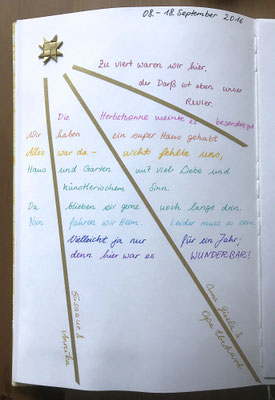 08. – 18. September 2016
Zu viert waren wir hier,
der Darß ist eben unser
Revier.
Die Herbstsonne meinte es besonders gut
Wir haben ein super Haus gehabt
Alles war da – nichts fehlte uns,
Haus und Garten mit viel Liebe und
künstlerischem Sinn.
Da blieben wir gerne noch lange drin.
Nun fahren wir Heim. Leider muss es sein
Vielleicht ja nur für ein Jahr,
denn hier war es WUNDERBAR!
Susanne &
Annika
Oma &
Opa